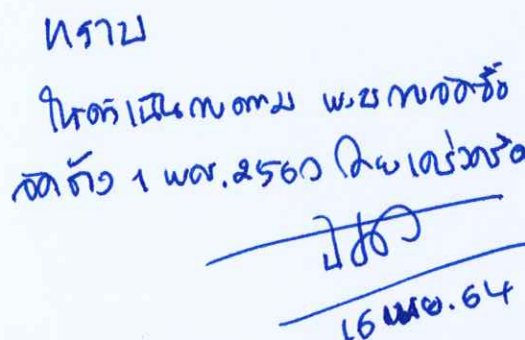 ทราบ
ให้ดำเนินการตาม พ.ร.บ การจัดซื้อ
จัดจ้าง โดยเคร่งครัด
16 เมย. 64